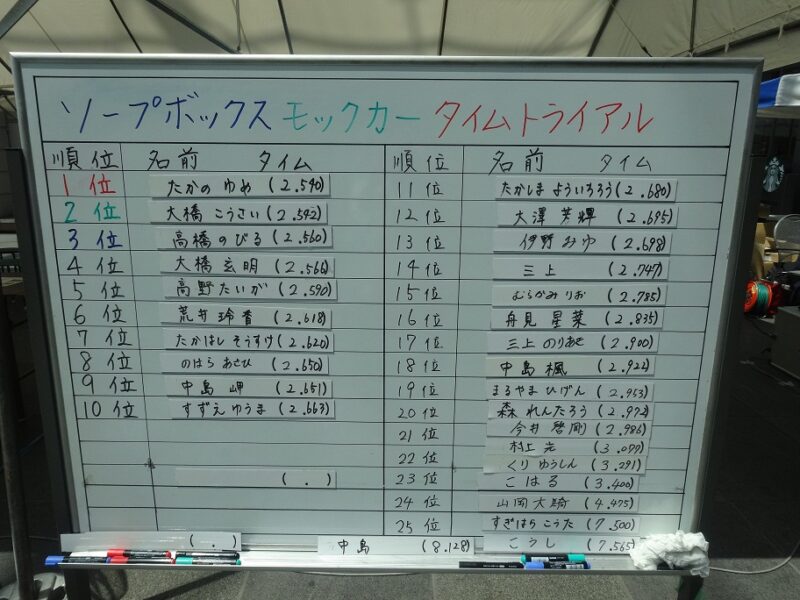 ソープボックス モックカー タイムトライアル
順位 名前 タイム
1位 たかの ゆめ (2.540)
2位 大橋 こうさい (2.542)
3位 高橋のびる (2.560)
4位 大橋玄明 (2.566)
5位 高野たいが (2.590)
6位 荒井 玲香 (2.618)
7位 たかはし そうすけ (2.620)
8位 のはら あさひ (2.650)
9位 中島 岬 (2.651)
10位 すずえ ゆうま (2.663)
( . )
( . )
順位 名前 タイム
11位 たかしま よういろう (2.680)
12位 大澤 芳輝 (2.695)
13位 伊野 みゆ (2.698)
14位 三上 (2.747)
15位 むらかみ りお (2.785)
16位 舟見 星葉 (2.835)
17位 三上 のりあき (2.900)
18位 中島 楓 (2.922)
19位 まるやま ひげん (2.953)
20位 森 れんたろう (2.972)
21位 今井 啓剛 (2.986)
村上 (3.077)
22位 くり ゆうしん (3.291)
23位 こはる (3.400)
24位 山岡大 (4.475)
25位 すぎはら こうた (7.500)
こうし (7.565)
中島 (8.128)